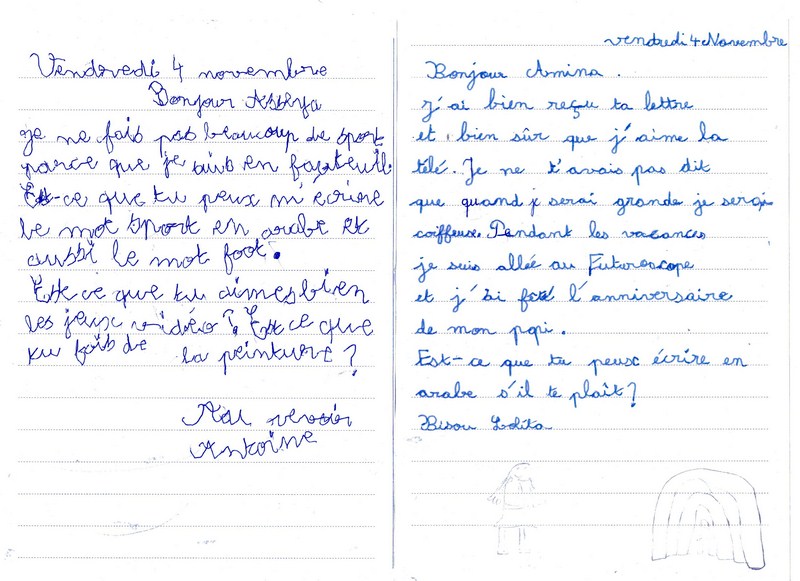 Vendredi 4 novembre
Bonjour
Je ne fais pas beaucoup de sport
parce que je suis en fauteuil.
Est-ce que tu peux m'écrire
le mot sport en arabe et
aussi le mot foot.
Est ce que tu aimes bien
les jeux vidéo ? Est ce que
tu fais de la peinture ?
Au revoir
Antoine
vendredi 4 Novembre
Bonjour Amina.
J'ai bien reçu ta lettre
et bien sûr que j'aime la
télé. Je ne t'avais pas dit
que quand je serai grande je serai
coiffeuse. Pendant les vacances
je suis allée au Futuroscope
et j'ai fêté l'anniversaire
de mon papi.
Est-ce que tu peux écrire en
arabe s'il te plaît ?
Bisou Lolita